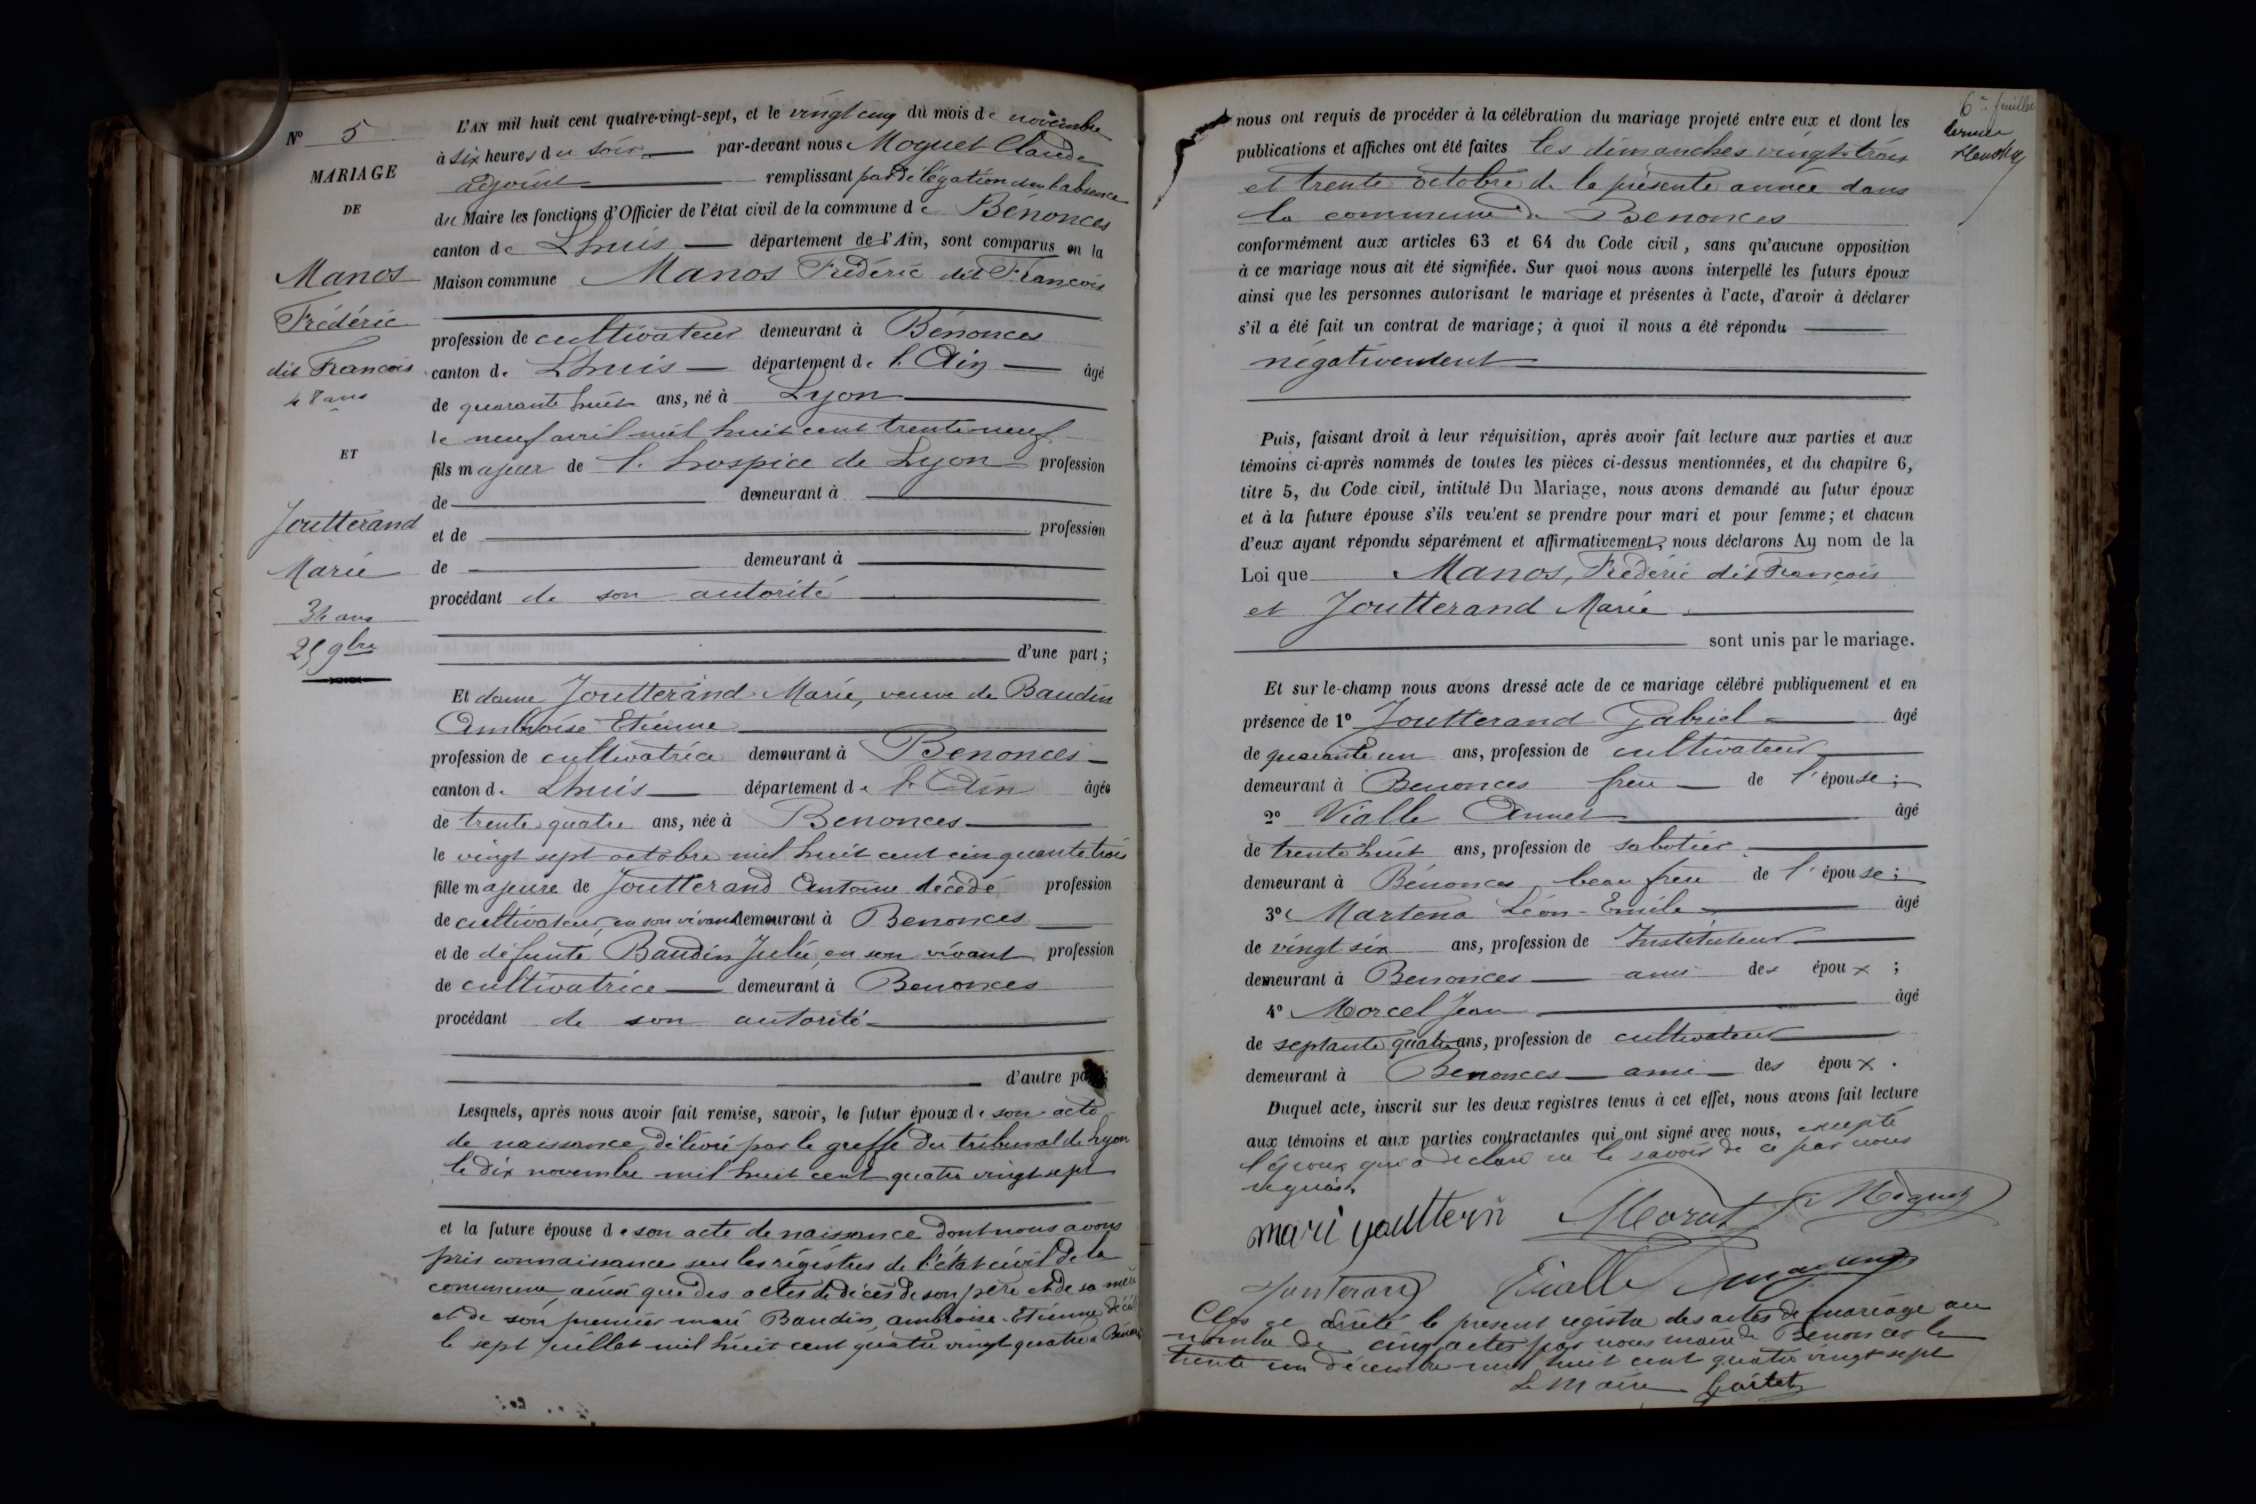 N° 5
MARIAGE
DE
Manos
Frédéric
dit François
48 ans
ET
Joutterand
Marie
34 ans
25 9bre
L'AN mil huit cent quatre-vingt-sept, et le vingt cinq du mois de novembre
à six heures du soir par-devant nous Moguet Claude
adjoint remplissant par délégation dans l'absence
du Maire les fonctions d'Officier de l'état civil de la commune de Bénonces
canton de Lhuis département de l'Ain, sont comparus en la
Maison commune Manos Frédéric dit François
profession de cultivateur demeurant à Bénonces
canton de Lhuis département de l'Ain âgé
de quarante huit ans, né à Lyon
le neuf avril mil huit cent trente neuf
fils majeur de l'hospice de Lyon profession
de demeurant à
et de profession
de demeurant à
procédant de son autorité
d'une part;
Et dame Joutterand Marie, veuve de Baudin
Ambroise Etienne
profession de cultivatrice demeurant à Bénonces
canton de Lhuis département de l'Ain âgée
de trente quatre ans, née à Bénonces
le vingt sept octobre mil huit cent cinquante trois
fille majeure de Joutterand Antoine décédé profession
de cultivateur en son vivant demeurant à Bénonces
et de défunte Baudin Julie, en son vivant profession
de cultivatrice demeurant à Bénonces
procédant de son autorité
d'autre part;
Lesquels, après nous avoir fait remise, savoir, le futur époux de son acte
de naissance, délivré par le greffe du tribunal de Lyon
le dix novembre mil huit cent quatre vingt sept
et la future épouse de son acte de naissance dont nous avons
pris connaissance sur les régistres de l'état civil de la
commune, ainsi que des actes de décès de son père et de sa mère
et de son premier mari Baudin, Ambroise-Etienne décédé
le sept juillet mil huit cent quatre vingt quatre à
6e feuillet
nous ont requis de procéder à la célébration du mariage projeté entre eux et dont les
publications et affiches ont été faites les dimanches vingt-trois
et trente octobre de la présente année dans
la commune de Bénonces
conformément aux articles 63 et 64 du Code civil, sans qu'aucune opposition
à ce mariage nous ait été signifiée. Sur quoi nous avons interpellé les futurs époux
ainsi que les personnes autorisant le mariage et présentes à l'acte, d'avoir à déclarer
s'il a été fait un contrat de mariage; à quoi il nous a été répondu
négativement
Puis, faisant droit à leur réquisition, après avoir fait lecture aux parties et aux
témoins ci-après nommés de toutes les pièces ci-dessus mentionnées, et du chapitre 6,
titre 5, du Code civil, intitulé Du Mariage, nous avons demandé au futur époux
et à la future épouse s'ils veulent se prendre pour mari et pour femme; et chacun
d'eux ayant répondu séparément et affirmativement, nous déclarons Au nom de la
Loi que Manos, Frédéric dit François
et Joutterand Marie
sont unis par le mariage.
Et sur-le-champ nous avons dressé acte de ce mariage célébré publiquement et en
présence de 1° Joutterand Gabriel âgé
de quarante un ans, profession de cultivateur
demeurant à Bénonces frère de l'épouse;
2° Vialle Annet âgé
de trente huit ans, profession de sabotier
demeurant à Bénonces beau frère de l'épouse;
3° Martena Léon-Emile âgé
de vingt six ans, profession de Instituteur
demeurant à Bénonces ami des époux;
4° Morcel Jean âgé
de septante quatre ans, profession de cultivateur
demeurant à Bénonces ami des époux.
Duquel acte, inscrit sur les deux registres tenus à cet effet, nous avons fait lecture
aux témoins et aux parties contractantes qui ont signé avec nous, excepté
l'époux qui a déclaré ne le savoir de ce par nous
requis.
mari Moguet
Vialle
Clos et arrêté le present registre des actes de mariage au
nombre de cinq actes par nous maire de Bénonces le
trente un décembre mil huit cent quatre vingt sept
Le Maire